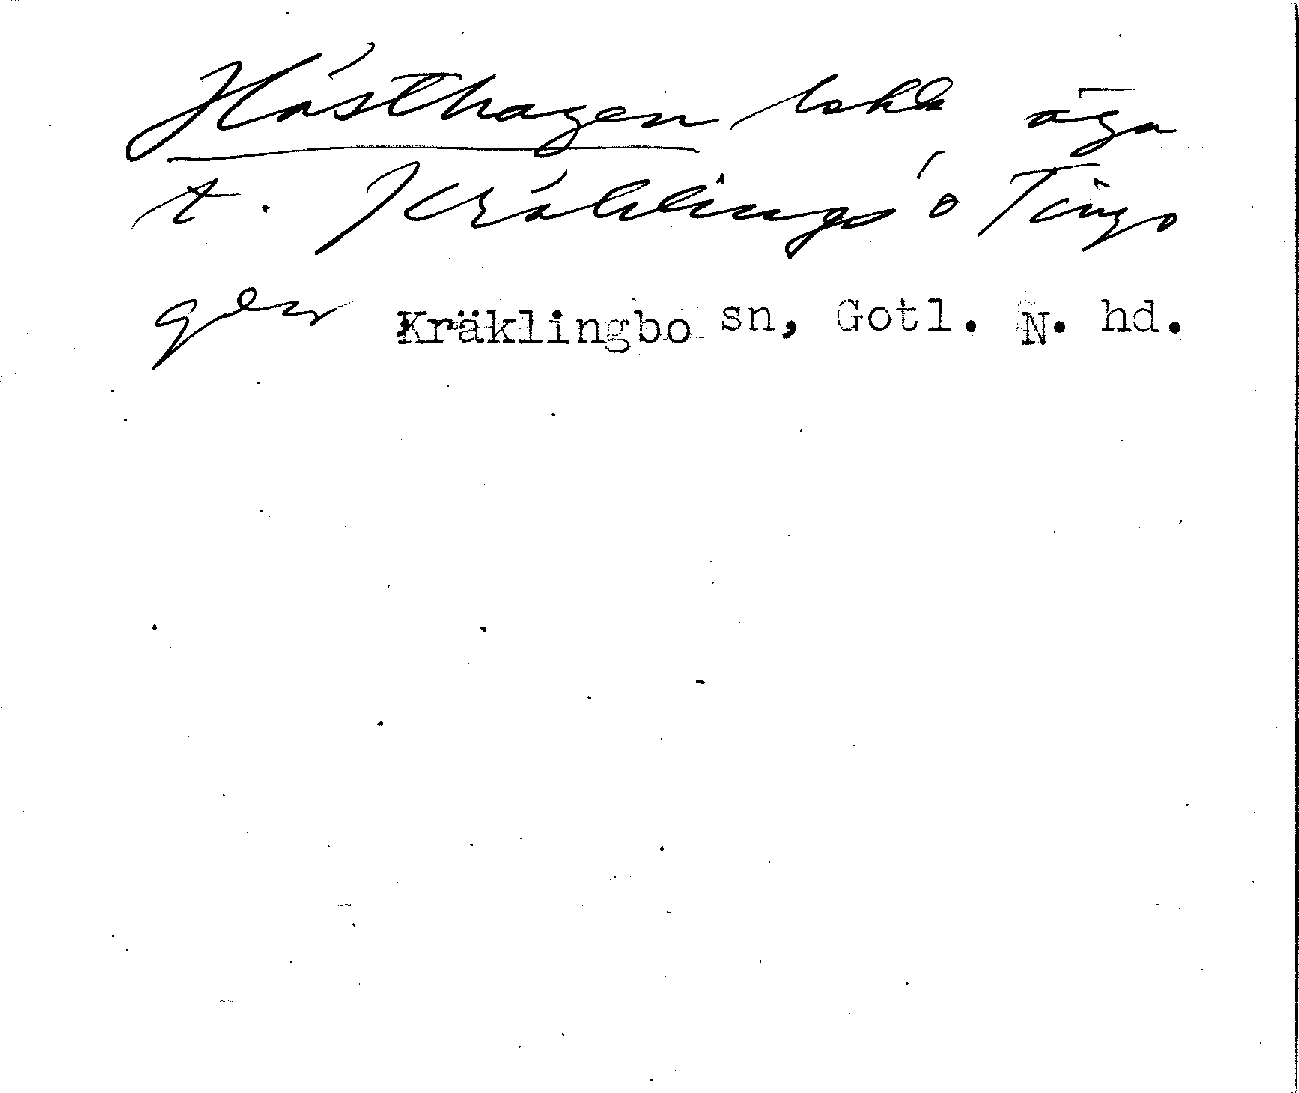 Hästhagen båda äga
t. Kräklings o Tings
gen Kräklingbo sn, Gotl. N. hd.